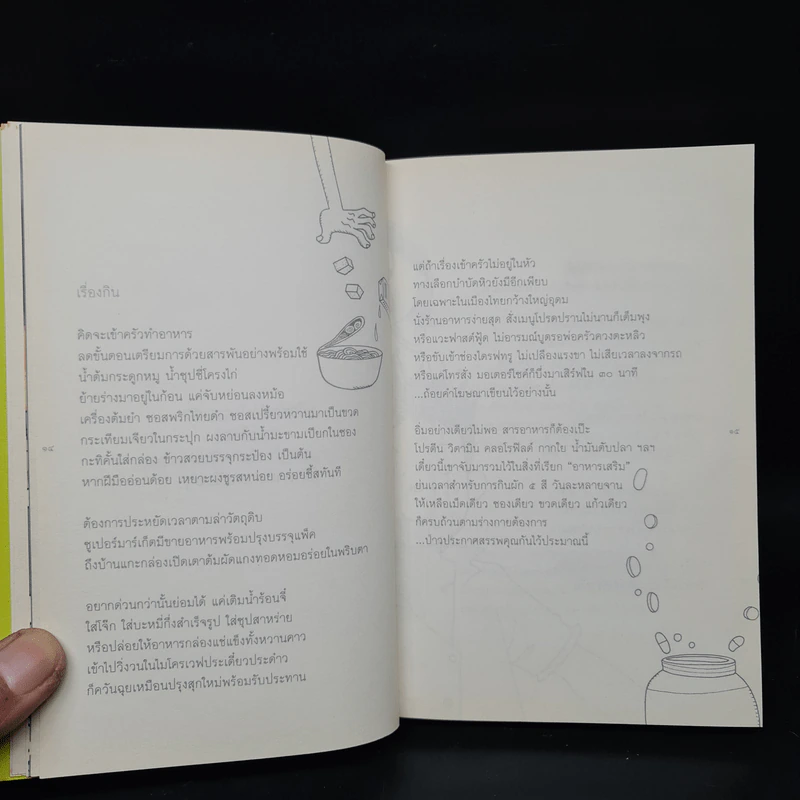 เรื่องกิน
คิดจะเข้าครัวทำอาหาร
ลดขั้นตอนเตรียมการด้วยสารพันอย่างพร้อมใช้
น้ำต้มกระดูกหมู น้ำซุปซี่โครงไก่
ย้ายร่างมาอยู่ในก้อน แค่จับหย่อนลงหม้อ
เครื่องต้มยำ ซอสพริกไทยดำ ซอสเปรี้ยวหวานมาเป็นขวด
กระเทียมเจียวในกระปุก ผงลาบกับน้ำมะขามเปียกในซอง
กะทิคั้นใส่กล่อง ข้าวสวยบรรจุกระป๋อง เป็นต้น
หากฝีมืออ่อนด้อย เหยาะผงชูรสหน่อย อร่อยชี้สทันที
๑๔
ต้องการประหยัดเวลาตามล่าวัตถุดิบ
ซูเปอร์มาร์เก็ตมีขายอาหารพร้อมปรุงบรรจุแพ็ค
ถึงบ้านแกะกล่องเปิดเตาต้มผัดแกงทอดหอมอร่อยในพริบตา
อยากด่วนกว่านั้นย่อมได้ แค่เติมน้ำร้อนจี๋
ใส่โจ๊ก ใส่บะหมี่กึ่งสำเร็จรูป ใส่ซุปสาหร่าย
หรือปล่อยให้อาหารกล่องแช่แข็งทั้งหวานคาว
เข้าไปวิ่งวนในไมโครเวฟประเดี๋ยวประด๋าว
ก็ควันฉุยเหมือนปรุงสุกใหม่พร้อมรับประทาน
แต่ถ้าเรื่องเข้าครัวไม่อยู่ในหัว
ทางเลือกบำบัดหิวยังมีอีกเพียบ
โดยเฉพาะในเมืองไทยกว้างใหญ่อุดม
นั่งร้านอาหารง่ายสุด สั่งเมนูโปรดปรานไม่นานก็เต็มพุง
หรือแวะฟาสต์ฟู้ด ไม่อารมณ์บูดรอพ่อครัวควงตะหลิว
หรือขับเข้าช่องไดรฟทรู ไม่เปลืองแรงขา ไม่เสียเวลาลงจากรถ
หรือแค่โทรสั่ง มอเตอร์ไซค์ก็บึ่งมาเสิร์ฟใน ๓๐ นาที
...ถ้อยคำโฆษณาเขียนไว้อย่างนั้น
อิ่มอย่างเดียวไม่พอ สารอาหารก็ต้องเป๊ะ
๑๕
โปรตีน วิตามิน คลอโรฟีลด์ กากใย น้ำมันตับปลา ฯลฯ
เดี๋ยวนี้เขาจับมารวมไว้ในสิ่งที่เรียก “อาหารเสริม”
ย่นเวลาสำหรับการกินผัก ๕ สี วันละหลายจาน
ให้เหลือเม็ดเดียว ซองเดียว ขวดเดียว แก้วเดียว
ก็ครบถ้วนตามร่างกายต้องการ
...ป่าวประกาศสรรพคุณกันไว้ประมาณนี้